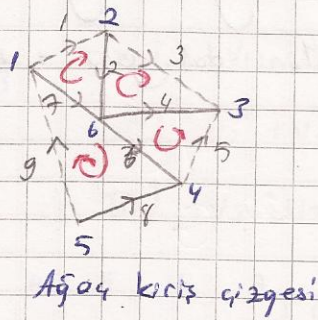 1
2
1
3
2
4
3
7
6
6
5
9
8
4
5
Ağaç kiriş çizgesi